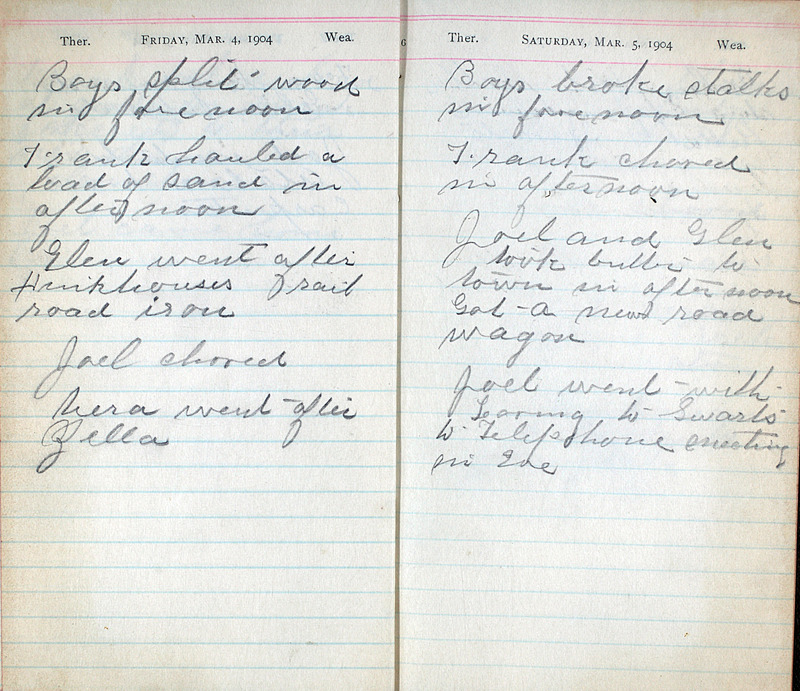 Ther. FRIDAY, MAR. 4, 1904 Wea.
Boys split wood
in fore noon
Frank hauled a
load of sand in
after noon
Glen went after
rail
road iron
Joel chored
Vera went after
Zella
Ther. SATURDAY, MAR. 5, 1904 Wea.
Boys broke stalks
in fore noon
Frank chored
in afternoon
Joel and Glen
took butter to
town in after noon
Got a new road
wagon
Joel went with
to Swarts
to Telephone meeting
in Eve